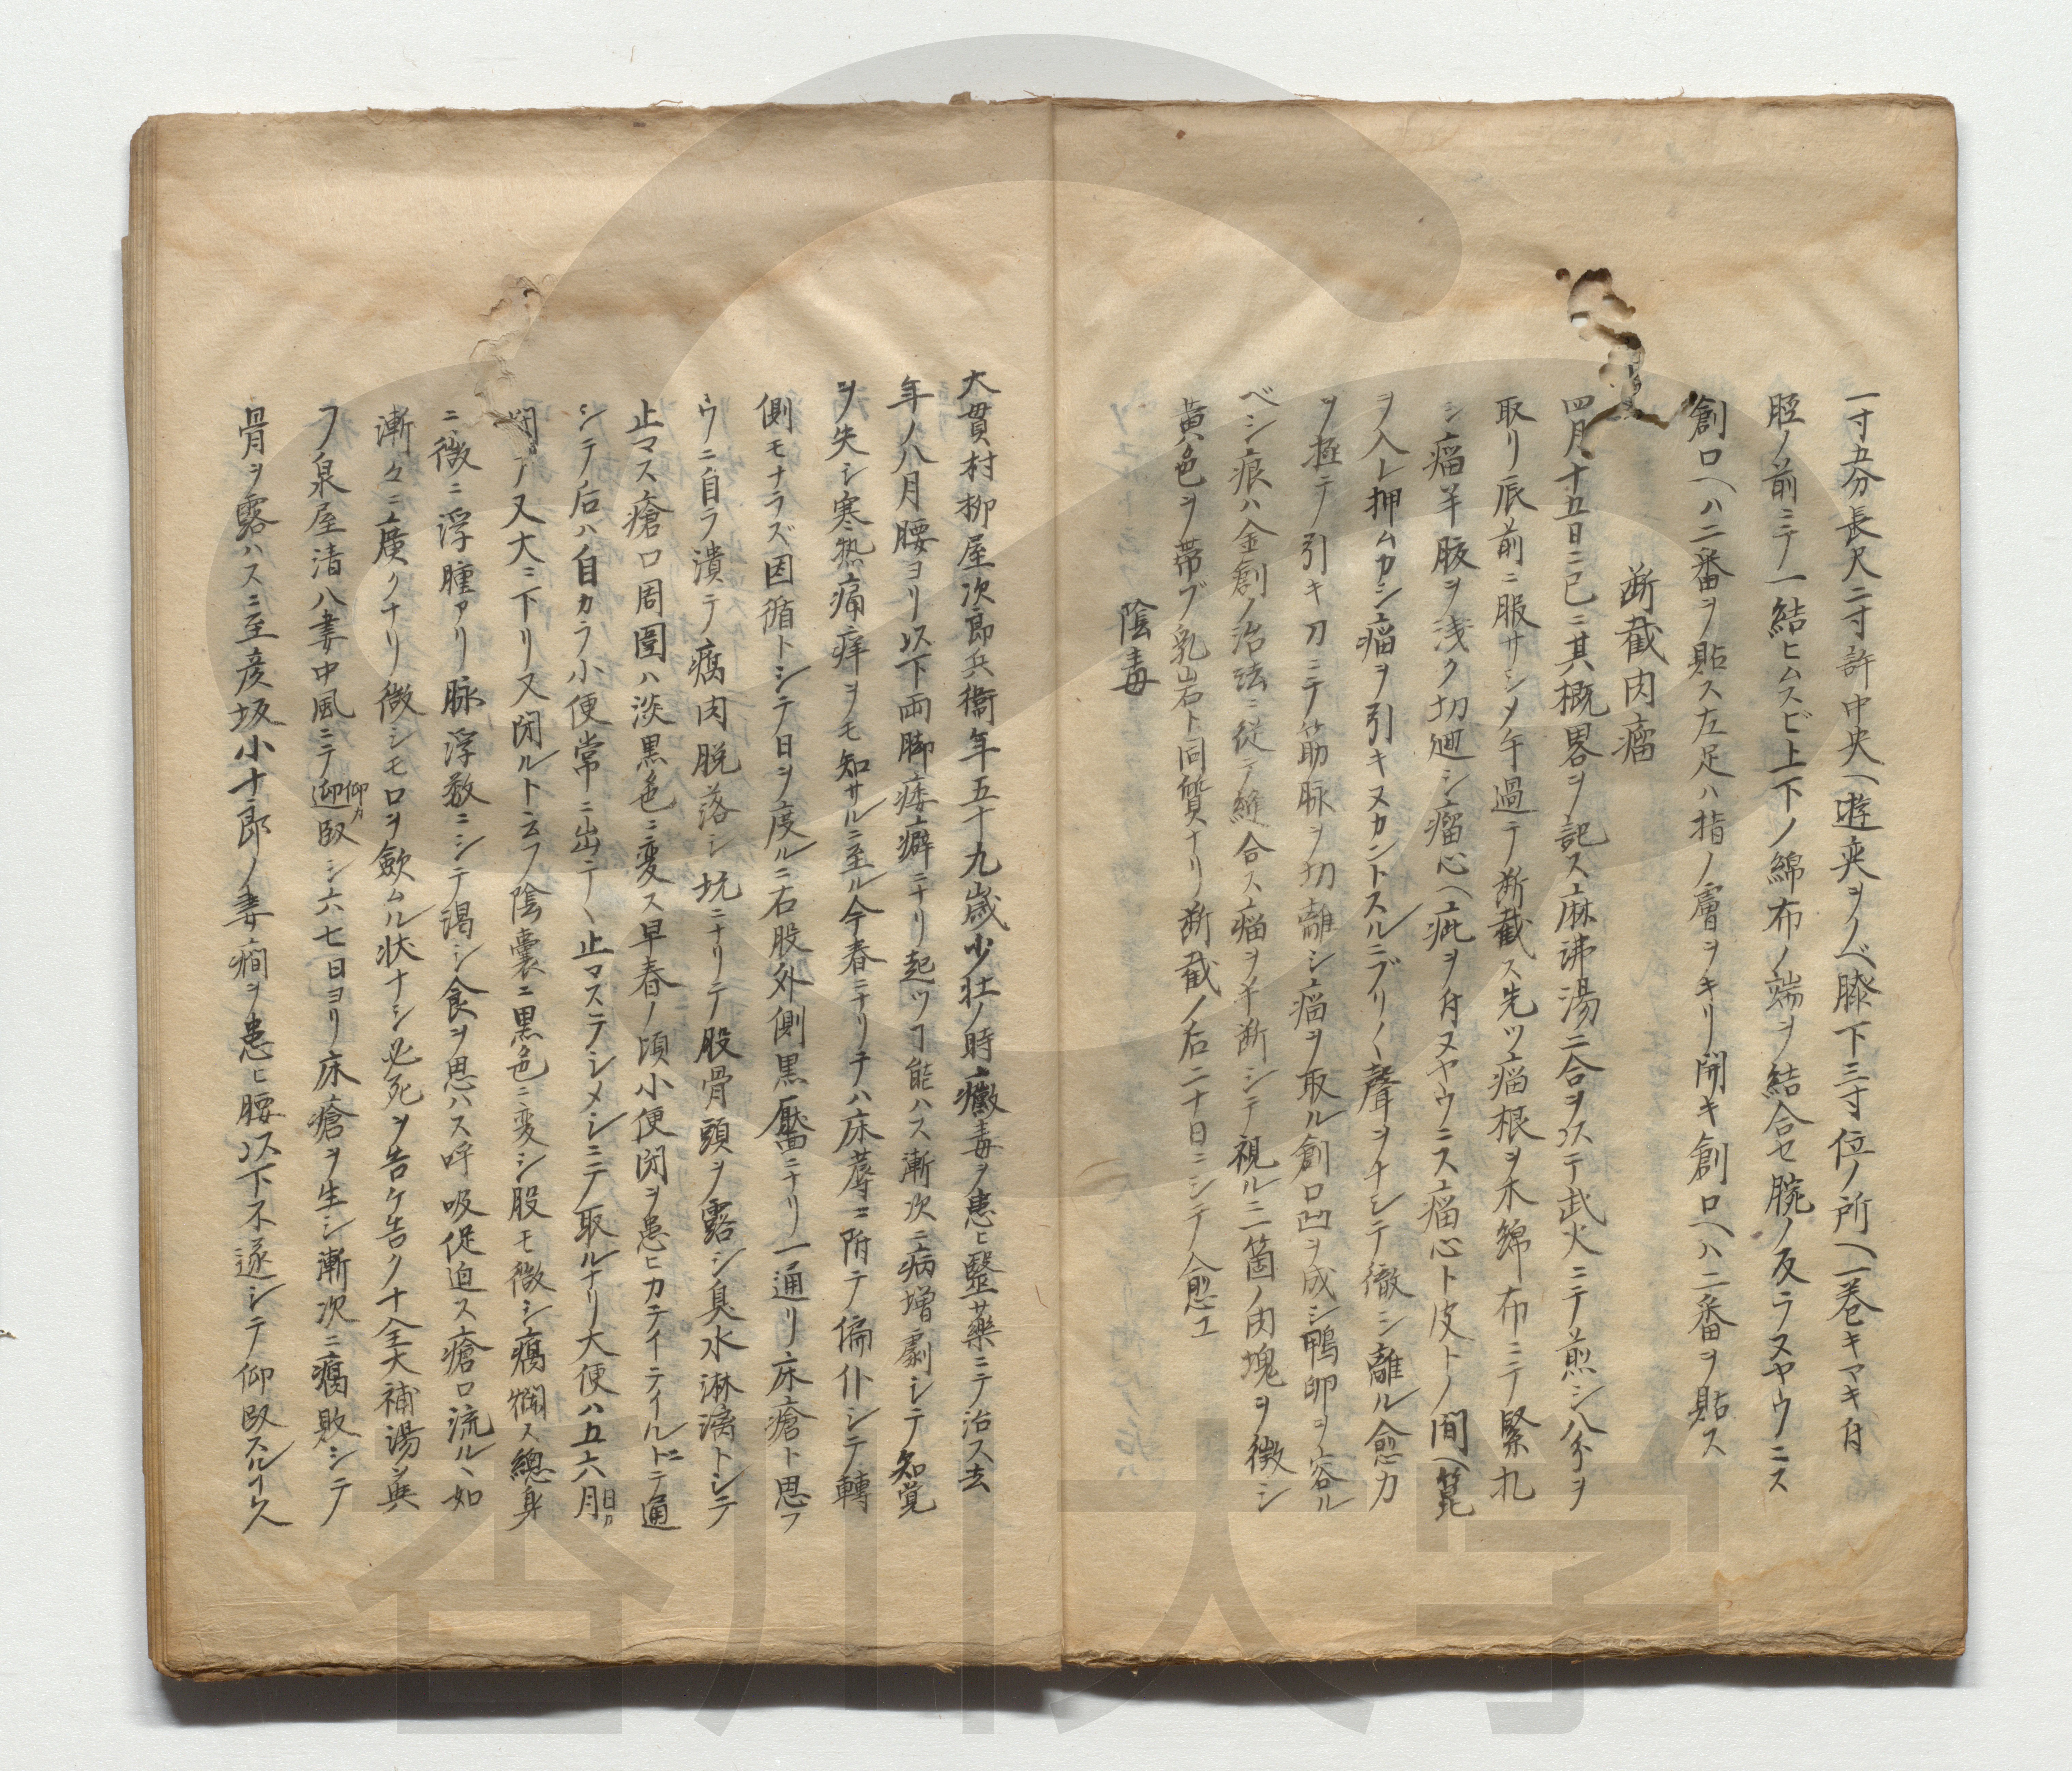 一寸五分長尺二寸許中央ヘ遊夾ヲノベ膝下三寸位ノ所ヘ一巻キマキ付
脛ノ前ニテ一結ヒムスビ上下ノ綿布ノ端ヲ結合セ腕ノ反ラヌヤウニス
創口ヘハ二番ヲ貼ス左足ハ指ノ層ヲキリ開キ創口ヘハ二番ヲ貼ス
断截肉瘤
四月十五日ニ已ニ其概畧ヲ記ス麻沸湯二合ヲ以テ武火ニテ煎シ八分ヲ
取リ辰前ニ服サシメ午過テ断截ス先ツ瘤根ヲ木綿布ニテ緊扎
シ瘤半腹ヲ浅ク切廻シ瘤心ヘ疵ヲ付ヌヤウニス瘤心ト皮トノ間ヘ箆
ヲ入レ押ムカシ瘤ヲ引キヌカントスルニブリ〱聲ヲナシテ徹シ離ル愈力
ヲ極テ引キ刀ニテ筋脉ヲ切離シ瘤ヲ取ル創口凹ヲ成シ鴨卵ヲ容ル
ベシ痕ハ金創ノ治法ニ従テ縫合ス瘤ヲ半断シテ視ル二箇ノ肉塊ヲ徴シ
黄色ヲ帯ブ乳岩ト同質ナリ断截ノ后二十日ニシテ愈エ
陰毒
大貫村柳屋次郎兵衛年五十九歳少壮ノ時黴毒ヲ患ヒ醫藥ニテ治ス去
年ノ八月腰ヨリ以下両脚痿癖ニナリ起ツヿ能ハス漸次ニ病増劇シテ知覚
ヲ失シ寒熱痛痒ヲモ知サルニ至ル今春ニナリテハ床蓐ニ附テ偏仆シテ轉
側モナラズ因循トシテ日ヲ度ルニ右股外側黒靨ニナリ一通リ床瘡ト思フ
ウニ自ラ潰テ腐肉脱落シ坑ニナリテ股骨頭ヲ露シ臭水淋漓トシテ
止マス瘡口周囲ハ淡黒色ニ変ス早春ノ頃小便閉ヲ患ヒカテイテイルニテ通
シテ后ハ自カラ小便常ニ出テヽ止ロステシメシニテ取ルナリ大便ハ五六月日カ
閉テ又大ニ下リ又閉ルト云フ陰嚢ニ黒色ニ変シ股モ微シ腐爛ス總身
ニ微ニ浮腫アリ脉浮数ニシテ渇シ食ヲ思ハス呼吸促迫ス瘡口流ルヽ如
漸々ニ廣クナリ微シモ口ヲ歛ムル状ナシ必死ヲ告ケ告ク十全大補湯ヲ與
フ泉屋清八妻中風ニテ迎仰カ臥シ六七日ヨリ床瘡ヲ生シ漸次ニ腐敗シテ
骨ヲ露ハスニ至彦坂小十郎ノ妻癇ヲ患ヒ腰以下不遂シテ仰臥スルヿ久